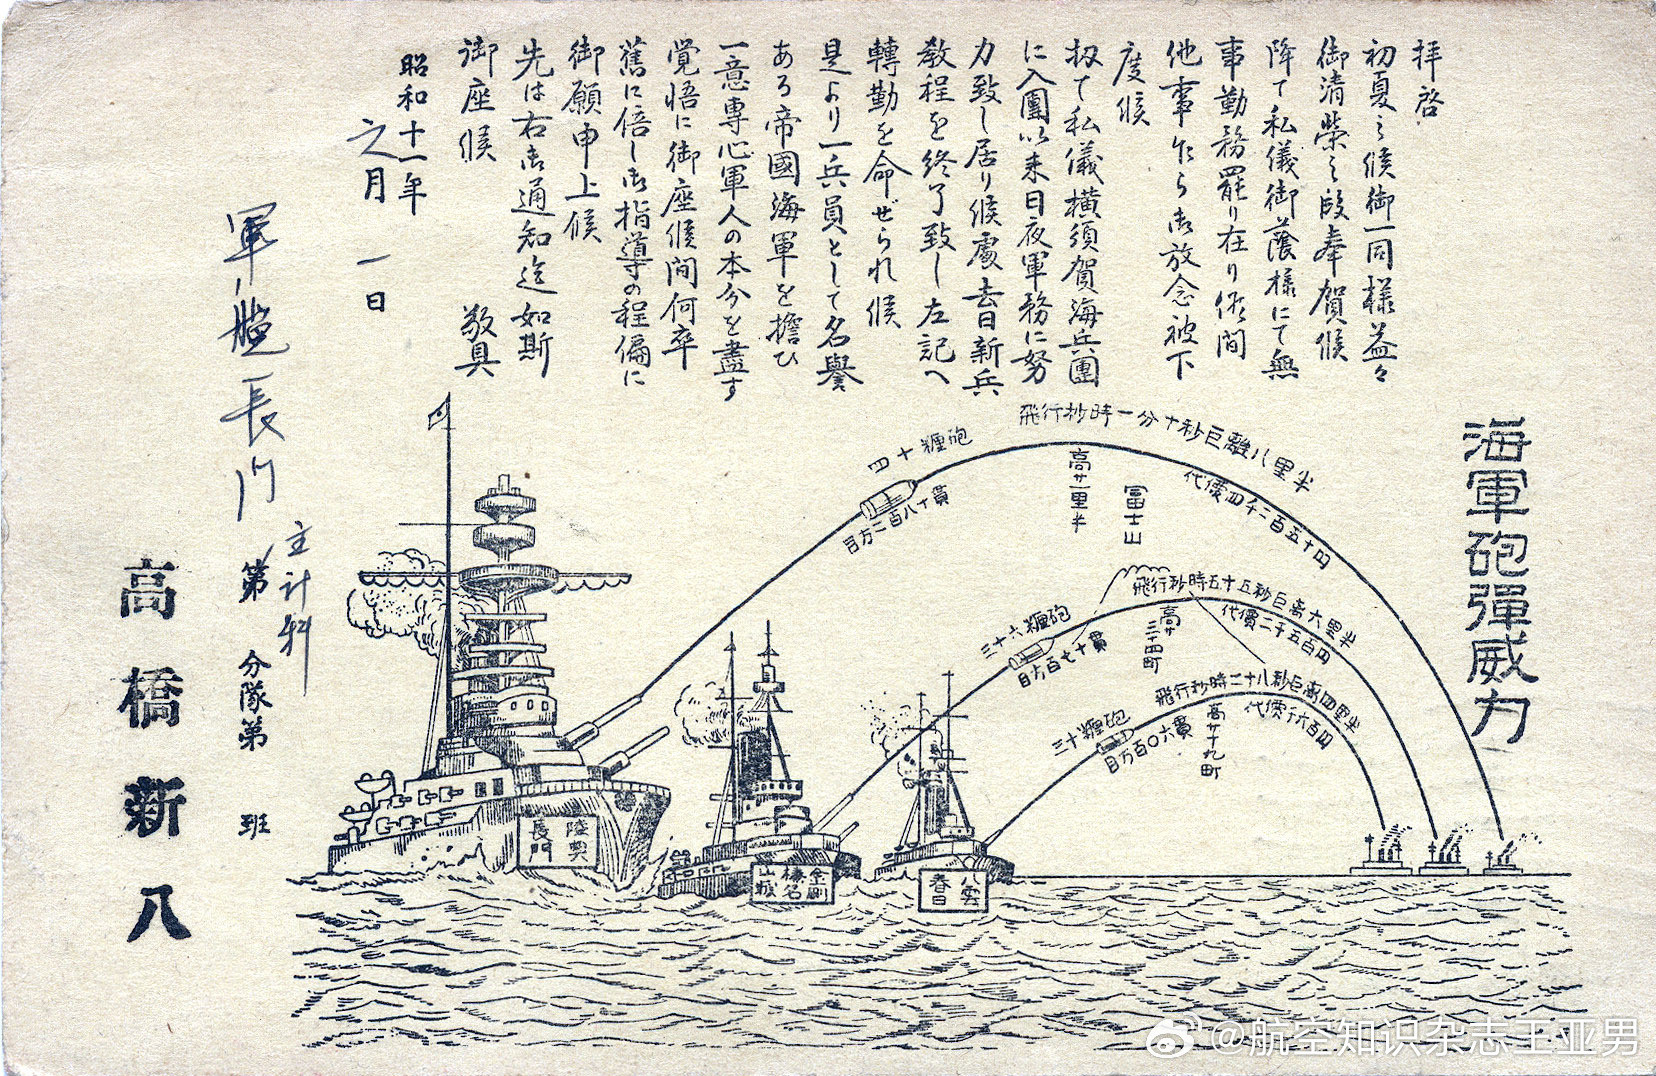 海軍砲彈威力
拝啓
初夏之候御一同様益々
御清榮之段奉賀候
降て私儀御蔭様にて無
事勤務罷り在り候間
他事乍ら御放念被下
度候
扨て私儀橫須賀海兵團
に入團以来日夜軍務に努
力致し居り候處去日新兵
教程を終了致し左記へ
轉勤を命ぜられ候
是より一兵員として名譽
ある帝國海軍を擔ひ
一意専心軍人の本分を盡す
覚悟に御座候間何卒
舊に倍し御指導の程偏に
御願申上候
先は右御通知迄如斯
御座候 敬具
昭和十一年
之月 一日
軍艦長門
主計科
第 分隊第 班
高橋新八
飛行秒時一分十秒巨離八里半
代價四千二百五十円
四十糎砲
目方二百八十貫
高サ二里半
富士山
飛行秒時五十五秒巨离六里半
代價二千五百円
三十六糎砲
目方百七十貫
高サ三十四町
飛行秒時二十八秒巨离四里半
代價千六百円
三十糎砲
目方百〇六貫
高サ十九町
陸奥
長門
金剛
榛名
山城
八雲
春日
@航空知识杂志王亚男